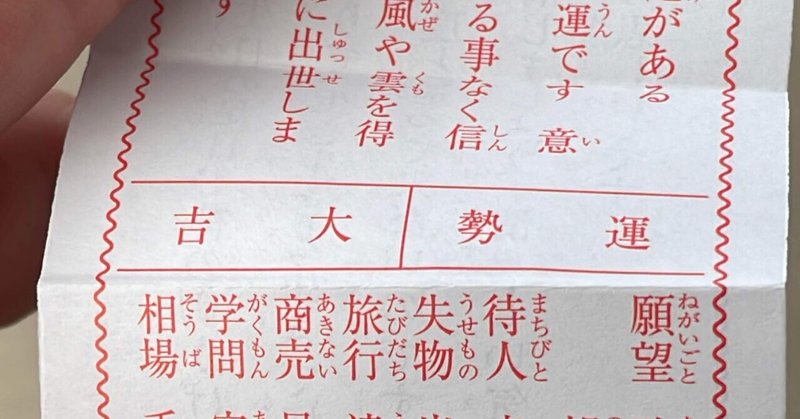 がある
うん い
運です 意
しん
る事なく信
かぜ くも
風や雲を得
しゅっせ
に出世しま
す
運勢
大吉
ねがいごと
願望
まちびと
待人
うせもの
失物
たびだち
旅行
あきない
商売
がくもん
学問
そうば
相場